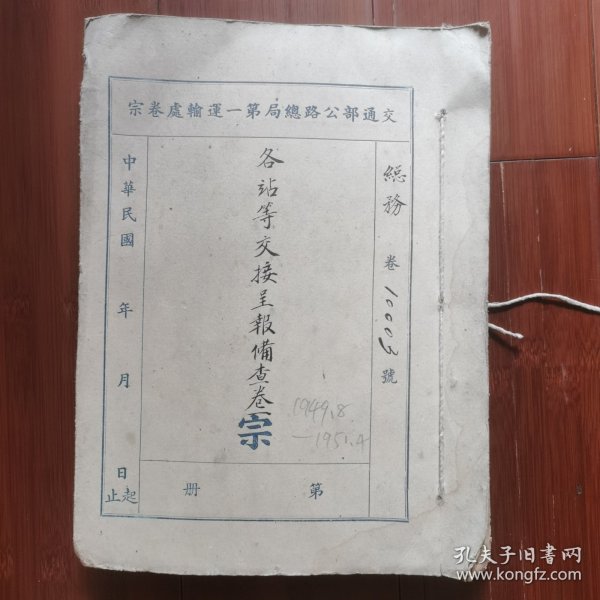 交通部公路總局第一運輸處卷宗
總務 卷10003號
各站等交接呈報備查卷宗
1949.8
—1951.4
第 册
中華民國 年 月 日起止
孔夫子旧書网
www.kongfz.com